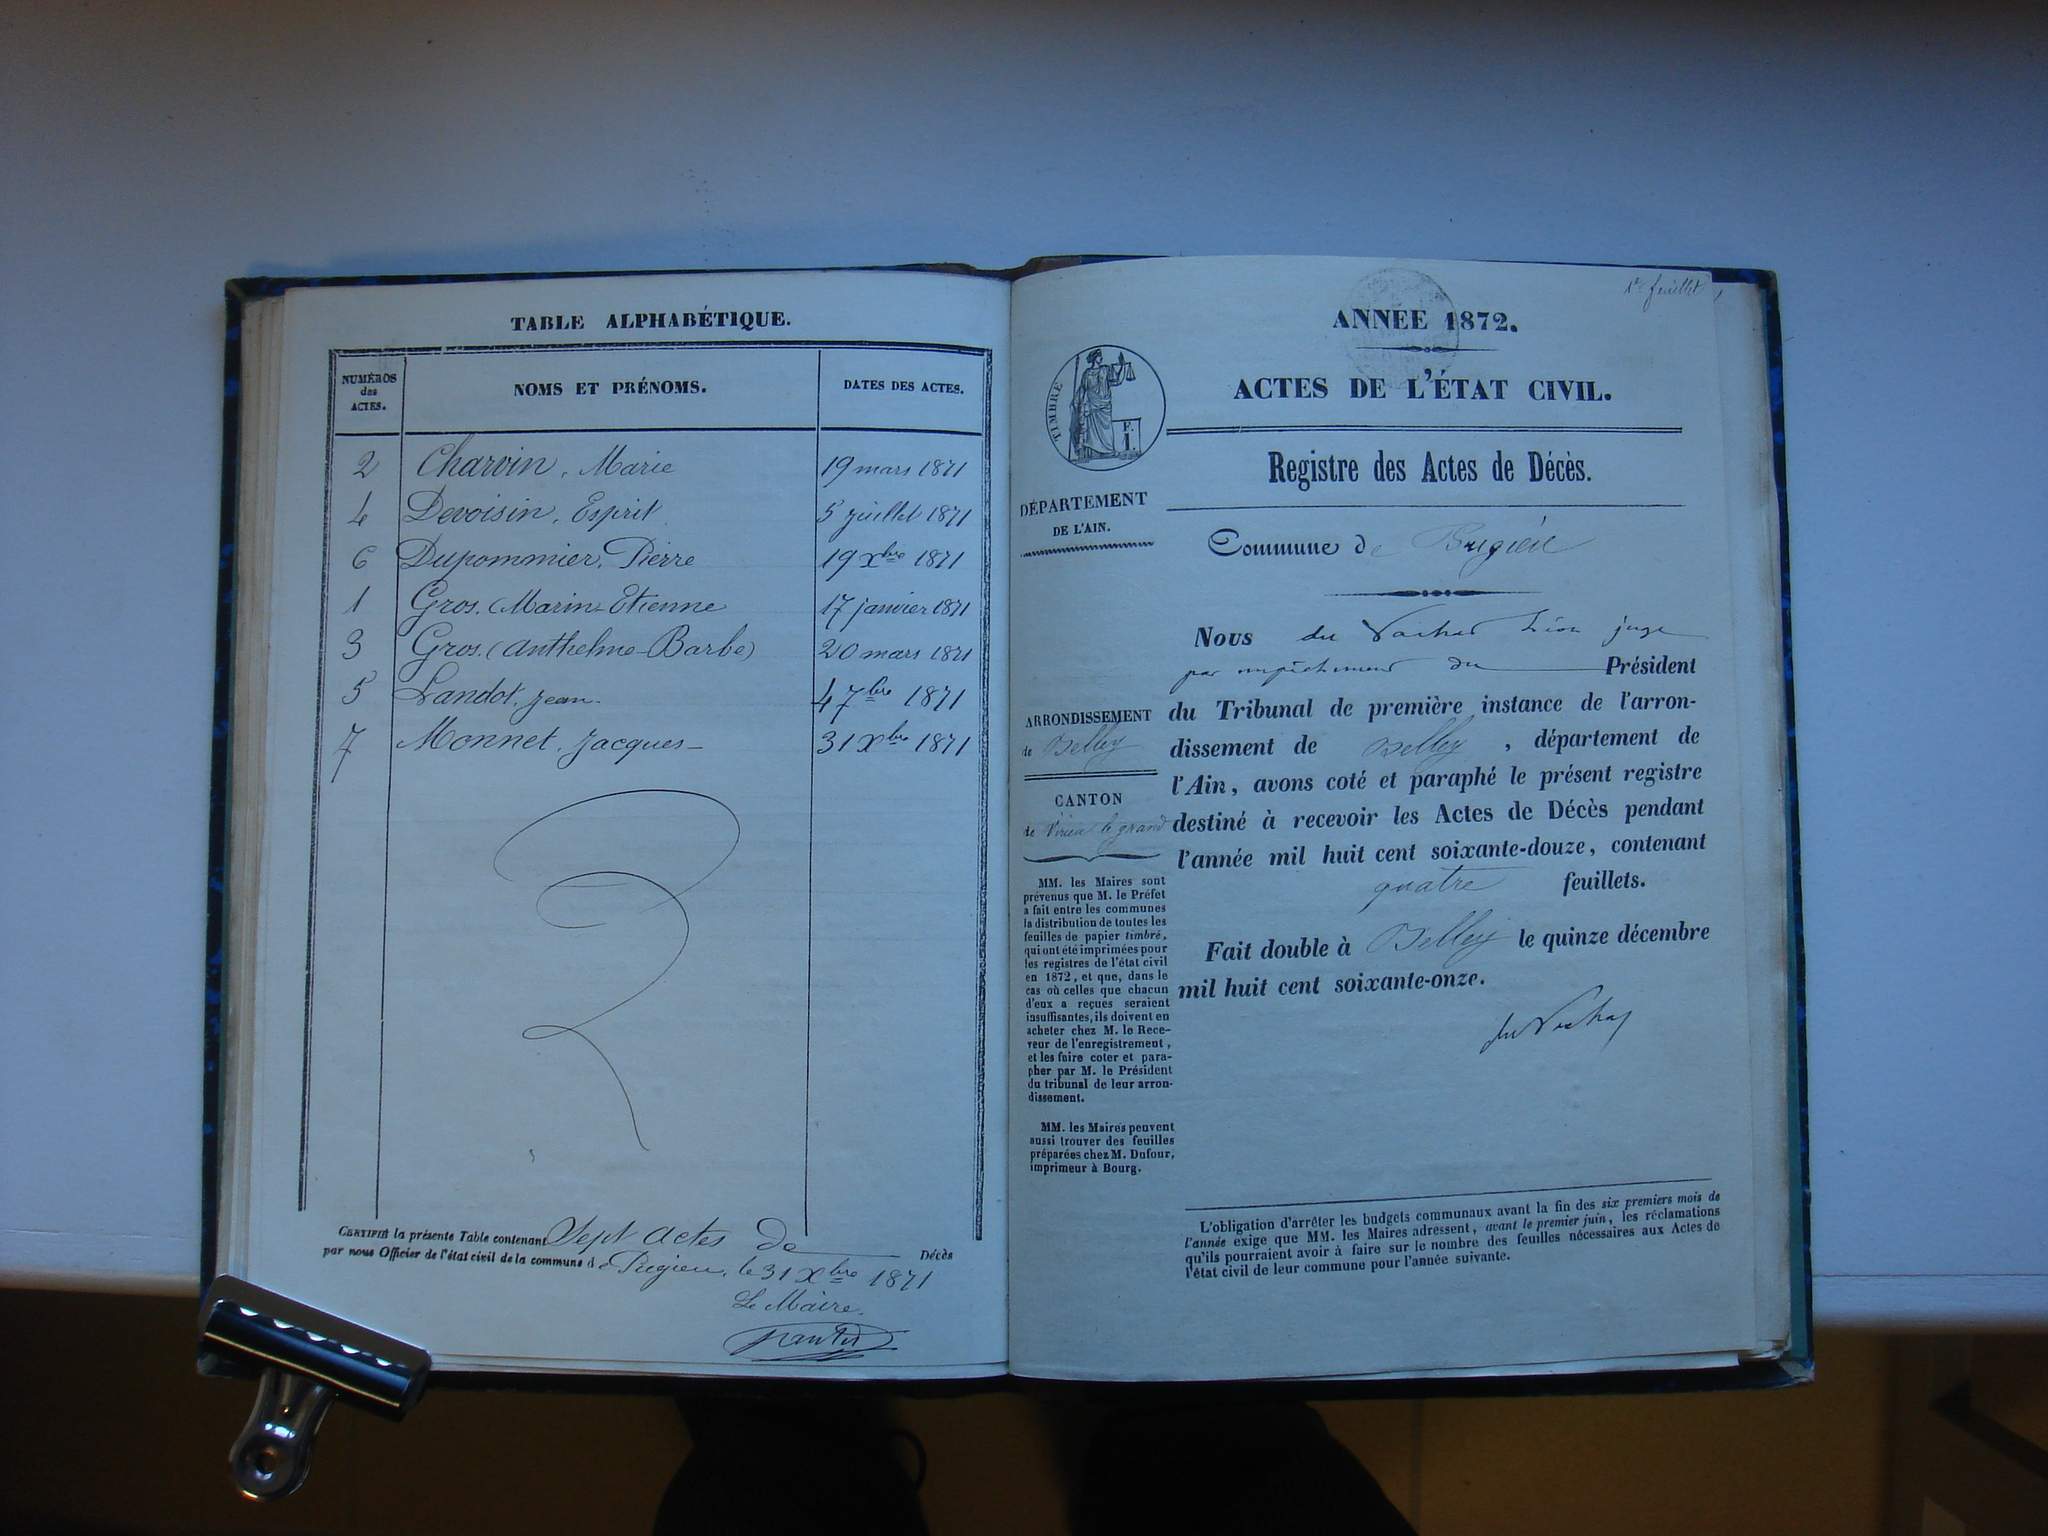 TABLE ALPHABÉTIQUE.
NUMÉROS des ACTES.
NOMS ET PRÉNOMS.
DATES DES ACTES.
2 Charvin, Marie 19 mars 1871
4 Devoisin, Esprit 5 juillet 1871
6 Dupommier, Pierre 19 Xbre 1871
1 Gros, (Marin-Etienne 17 janvier 1871
3 Gros, (Anthelme-Barbe) 20 mars 1871
5 Landot, Jean 4 7bre 1871
7 Monnet, Jacques 31 Xbre 1871
CERTIFIÉ la présente Table contenant Sept actes de Décès
par nous Officier de l'état civil de la commune de Pugieu, le 31 Xbre 1871
Le Maire.
1er feuillet
ANNÉE 1872.
ACTES DE L'ÉTAT CIVIL.
Registre des Actes de Décès.
TIMBRE
F.
1.
DÉPARTEMENT
DE L'AIN.
Commune de
Nous du Léon juge
par empêchement du Président
du Tribunal de première instance de l'arron-
dissement de Belley, département de
l'Ain, avons coté et paraphé le présent registre
destiné à recevoir les Actes de Décès pendant
l'année mil huit cent soixante-douze, contenant
quatre feuillets.
Fait double à Belley le quinze décembre
mil huit cent soixante-onze.
ARRONDISSEMENT
de Belley
CANTON
de Virieu le grand
MM. les Maires sont
prévenus que M. le Préfet
a fait entre les communes
la distribution de toutes les
feuilles de papier timbré,
qui ont été imprimées pour
les registres de l'état civil
en 1872, et que, dans le
cas où celles que chacun
d'eux a reçues seraient
insuffisantes, ils doivent en
acheter chez M. le Rece-
veur de l'enregistrement,
et les faire coter et para-
pher par M. le Président
du tribunal de leur arron-
dissement.
MM. les Maires peuvent
aussi trouver des feuilles
préparées chez M. Dufour,
imprimeur à Bourg.
L'obligation d'arrêter les budgets communaux avant la fin des six premiers mois de
l'année exige que MM. les Maires adressent, avant le premier juin, les réclamations
qu'ils pourraient avoir à faire sur le nombre des feuilles nécessaires aux Actes de
l'état civil de leur commune pour l'année suivante.